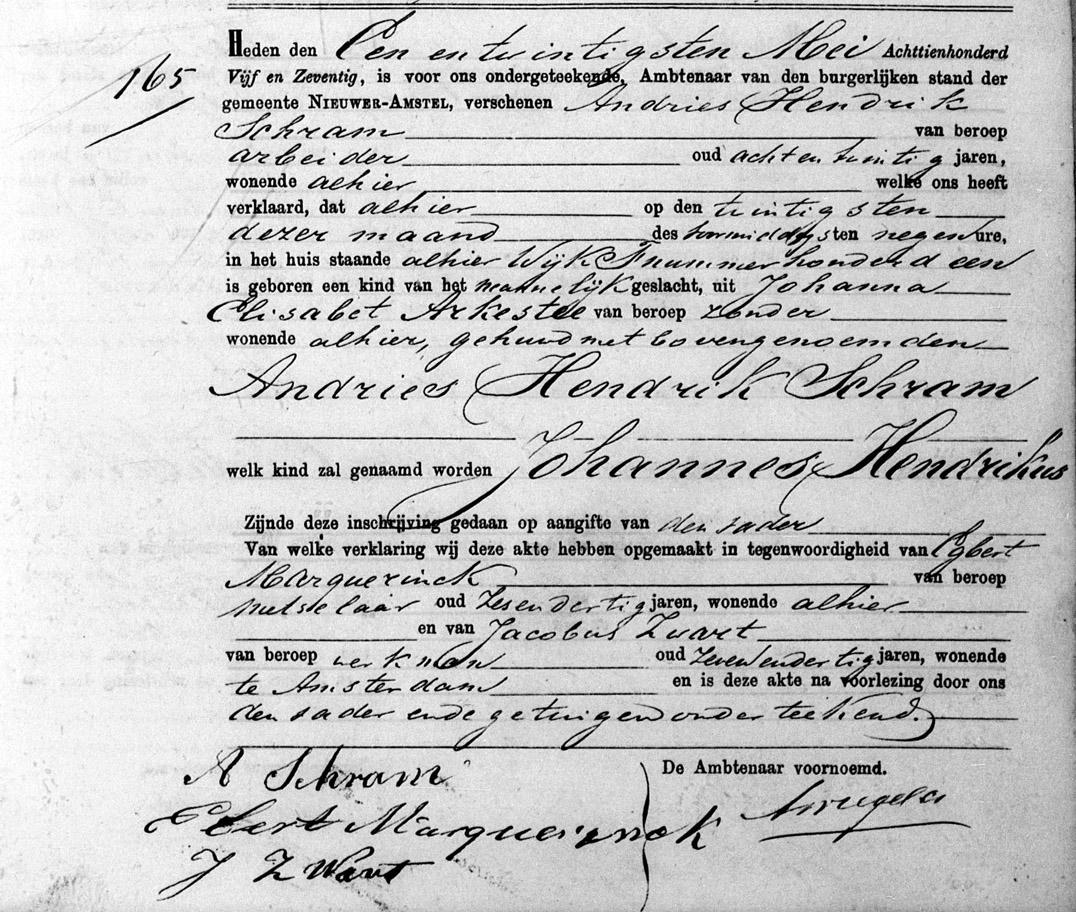 Heden den Een en twintigsten Mei Achttienhonderd
165
Vijf en Zeventig, is voor ons ondergeteekende, Ambtenaar van den burgerlijken stand der
gemeente NIEUWER-AMSTEL, verschenen Andries Hendrik
Schram van beroep
arbeider oud acht en twintig jaren,
wonende alhier welke ons heeft
verklaard, dat alhier op den twintigsten
dezer maand des voormiddags ten negen ure,
in het huis staande alhier Wijk F nummer honderd een
is geboren een kind van het mannelijk geslacht, uit Johanna
Elisabet Arkestee van beroep zonder
wonende alhier, gehuwd met bovengenoemden
Andries Hendrik Schram
welk kind zal genaamd worden Johannes Hendrikus
Zijnde deze inschrijving gedaan op aangifte van den vader
Van welke verklaring wij deze akte hebben opgemaakt in tegenwoordigheid van Egbert
Marquerinck van beroep
metselaar oud Zesendertig jaren, wonende alhier
en van Jacobus Zwart
van beroep werkman oud Zevenendertig jaren, wonende
te Amsterdam en is deze akte na voorlezing door ons
den vader en de getuigen onderteekend.
De Ambtenaar voornoemd.
A Schram
Ebert Marquerinck
J Zwart